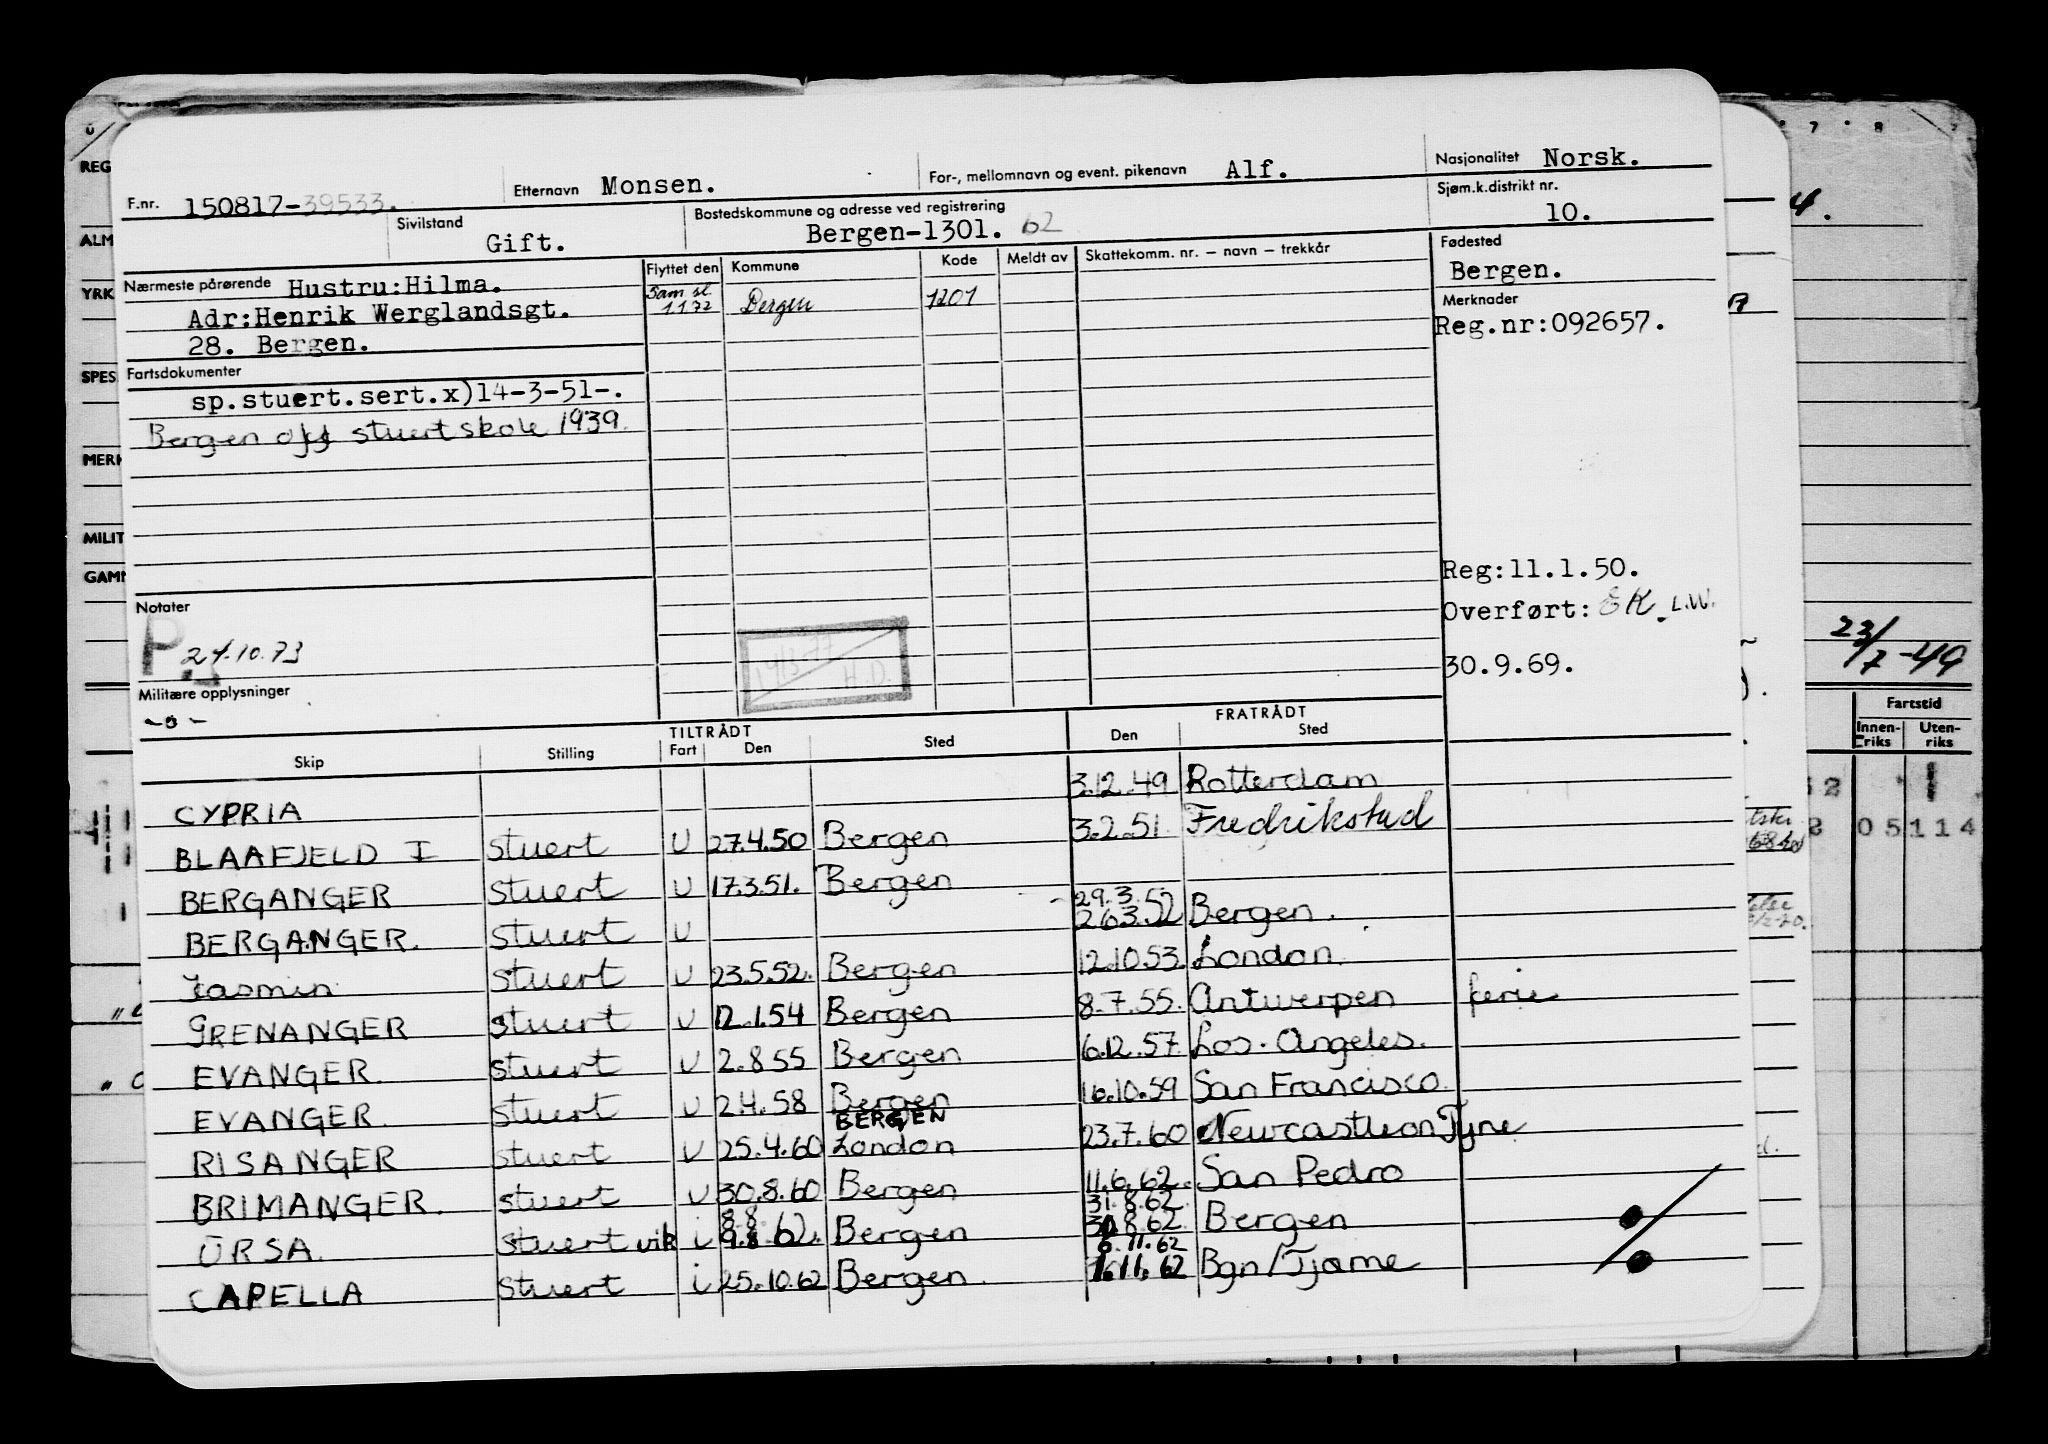 F.nr. 150817-39533. Etternavn Monsen. For-, mellomnavn og event. pikenavn Alf. Nasjonalitet Norsk.
Sivilstand Gift. Bostedskommune og adresse ved registrering Bergen-1301. 62 Sjøm.k.distrikt nr. 10.
Nærmeste pårørende Hustru:Hilma.
Adr:Henrik Werglandsgt.
28. Bergen.
Flyttet den Kommune Kode Meldt av Skattekomm. nr. – navn – trekkår
Sam sl 1 1 72 Bergen 1201
Fødested
Bergen.
Merknader
Reg.nr:092657.
Fartsdokumenter
sp.stuert.sert.x)14-3-51-.
Bergen off stuertskole 1939.
Reg:11.1.50.
Overført: EK. L.W.
30.9.69.
Notater
P. 24.10.73
H.D.
Militære opplysninger
-0-
TILTRÅDT FRATRÅDT
Skip Stilling Fart Den Sted Den Sted
CYPRIA 3.12.49 Rotterdam
BLAAFJELD I stuert U 27.4.50 Bergen 3.2.51. Fredrikstad
BERGANGER stuert U 17.3.51. Bergen
BERGANGER. stuert U 29.3.52 26.3.52 Bergen.
Jasmin stuert U 23.5.52. Bergen 12.10.53. London.
GRENANGER stuert U 12.1.54 Bergen 8.7.55. Antwerpen ferie
EVANGER. stuert U 2.8.55 Bergen 6.12.57. Los. Angeles.
EVANGER. stuert U 2.4.58 Bergen 16.10.59 San Francisco.
RISANGER stuert U 25.4.60 BERGEN London 23.7.60 Newcastle on Tyne
BRIMANGER. stuert U 30.8.60 Bergen 11.6.62. San Pedro
URSA. stuert vik i 8.8. 9.8.62. Bergen 31.8.62. 31.8.62. Bergen
CAPELLA stuert i 25.10.62 Bergen. 6.11.62 7.11.62 Bgn/Tjøme
REG
ALM
YRK
SPES
MERK
MILIT
GAMM
7 8
4.
23/7-49
Fartstid
Innen-riks Uten-riks
05 114